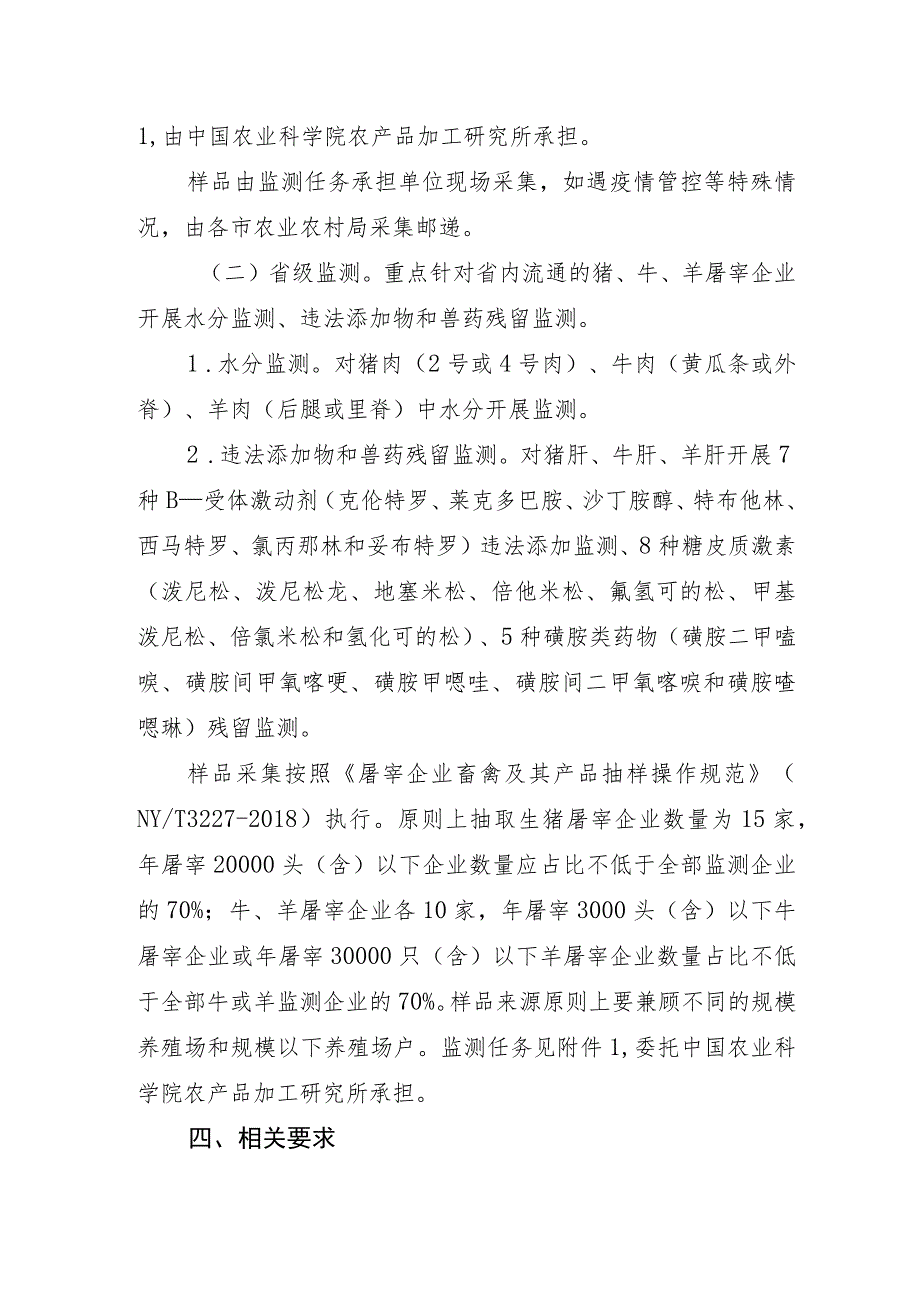 1,由中国农业科学院农产品加工研究所承担。
样品由监测任务承担单位现场采集，如遇疫情管控等特殊情
况，由各市农业农村局采集邮递。
（二）省级监测。重点针对省内流通的猪、牛、羊屠宰企业
开展水分监测、违法添加物和兽药残留监测。
1.水分监测。对猪肉（2号或4号肉）、牛肉（黄瓜条或外
脊）、羊肉（后腿或里脊）中水分开展监测。
2.违法添加物和兽药残留监测。对猪肝、牛肝、羊肝开展7
种B—受体激动剂（克伦特罗、莱克多巴胺、沙丁胺醇、特布他林、
西马特罗、氯丙那林和妥布特罗）违法添加监测、8种糖皮质激素
（泼尼松、泼尼松龙、地塞米松、倍他米松、氟氢可的松、甲基
泼尼松、倍氯米松和氢化可的松）、5种磺胺类药物（磺胺二甲嗑
唳、磺胺间甲氧喀哽、磺胺甲嗯哇、磺胺间二甲氧喀唳和磺胺喳
嗯琳）残留监测。
样品采集按照《屠宰企业畜禽及其产品抽样操作规范》（
NY/T3227-2018）执行。原则上抽取生猪屠宰企业数量为15家，
年屠宰20000头（含）以下企业数量应占比不低于全部监测企业
的70%；牛、羊屠宰企业各10家，年屠宰3000头（含）以下牛
屠宰企业或年屠宰30000只（含）以下羊屠宰企业数量占比不低
于全部牛或羊监测企业的70%。样品来源原则上要兼顾不同的规模
养殖场和规模以下养殖场户。监测任务见附件1,委托中国农业科
学院农产品加工研究所承担。
四、相关要求